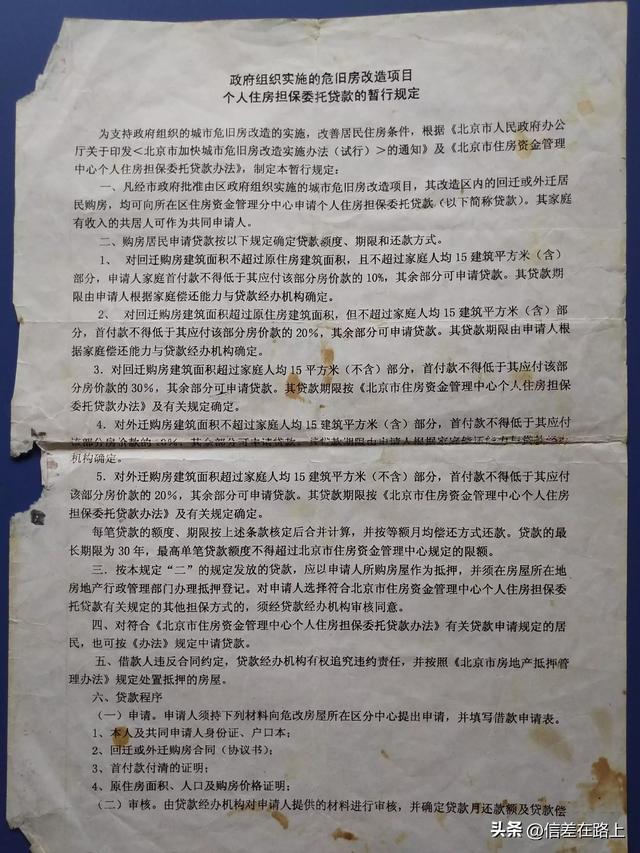 政府组织实施的危旧房改造项目
个人住房担保委托贷款的暂行规定
为支持政府组织的城市危旧房改造的实施，改善居民住房条件，根据《北京市人民政府办公
厅关于印发<北京市加快城市危旧房改造实施办法（试行）>的通知》及《北京市住房资金管理
中心个人住房担保委托贷款办法》，制定本暂行规定：
一、凡经市政府批准由区政府组织实施的城市危旧房改造项目，其改造区内的回迁或外迁居
民购房，均可向所在区住房资金管理分中心申请个人住房担保委托贷款（以下简称贷款）。其家庭
有收入的共居人可作为共同申请人。
二、购房居民申请贷款按以下规定确定贷款额度、期限和还款方式。
1、 对回迁购房建筑面积不超过原住房建筑面积，且不超过家庭人均15建筑平方米（含）
部分，申请人家庭首付款不得低于其应付该部分房价的10%，其余部分可申请贷款。其贷款期
限由申请人根据家庭偿还能力与贷款经办机构确定。
2、 对回迁购房建筑面积超过原住房建筑面积，但不超过家庭人均15建筑平方米（含）部
分，首付款不得低于其应付该部分房价款的20%，其余部分可申请贷款。其贷款期限由申请人根
据家庭偿还能力与贷款经办机构确定。
3．对回迁购房建筑面积超过家庭人均15平方米（不含）部分，首付款不得低于其应付该部
分房价的30%，其余部分可申请贷款。其贷款期限按《北京市住房资金管理中心个人住房担保
委托贷款办法》及有关规定确定。
4．对外迁购房建筑面积不超过家庭人均15建筑平方米（含）部分，首付款不得低于其应付
该部分房价款的 0%，其余部分可申请贷款。 贷款期限由申请人根据家庭偿还 力与贷款
机构确定。
5．对外迁购房建筑面积超过家庭人均15建筑平方米（不含）部分，首付款不得低于其应付
该部分房价款的20%，其余部分可申请贷款。其贷款期限按《北京市住房资金管理中心个人住房
担保委托贷款办法》及有关规定确定。
每笔贷款的额度、期限按上述条款核定后合并计算，并按等额月均偿还方式还款。贷款的最
长期限为30年，最高单笔贷款额度不得超过北京市住房资金管理中心规定的限额。
三．按本规定“二”的规定发放的贷款，应以申请人所购房屋作为抵押，并须在房屋所在地
房地产行政管理部门办理抵押登记。对申请人选择符合北京市住房资金管理中心个人住房担保委托
贷款有关规定的其他担保方式的，须经贷款经办机构审核同意。
四、对符合《北京市住房资金管理中心个人住房担保委托贷款办法》有关贷款申请规定的居
民，也可按《办法》规定申请贷款。
五、借款人违反合同约定，贷款经办机构有权追究违约责任，并按照《北京市房地产抵押管
理办法》规定处置抵押的房屋。
六、贷款程序
（一）申请。申请人须持下列材料向危改房屋所在区分中心提出申请，并填写借款申请表。
1、本人及共同申请人身份证、户口本；
2、回迁或外迁购房合同（协议书）；
3、首付款付清的证明；
4、原住房面积、人口及购房价格证明；
（二）审核。由贷款经办机构对申请人提供的材料进行审核，并确定贷款月还款额及贷款偿
头条 @信差在路上